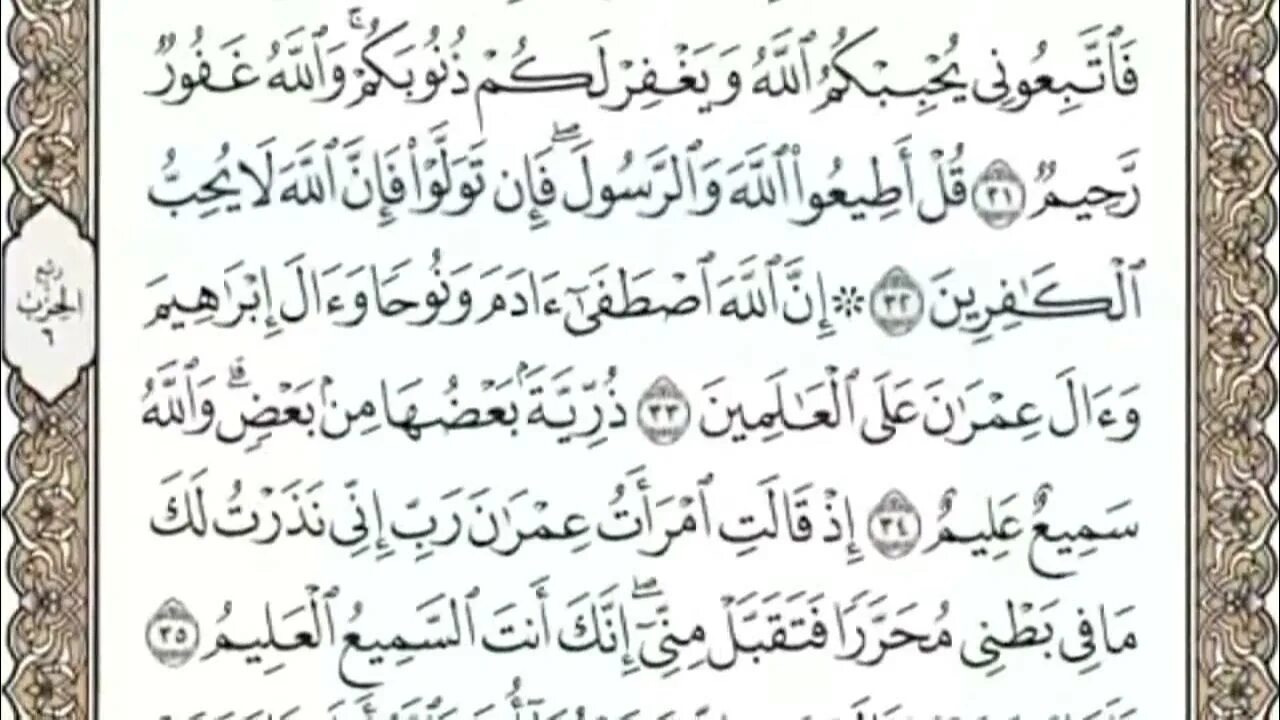 فَٱتَّبِعُونِي يُحۡبِبۡكُمُ ٱللَّهُ وَيَغۡفِرۡ لَكُمۡ ذُنُوبَكُمۡۚ وَٱللَّهُ غَفُورٞ
رَّحِيمٞ ٣١ قُلۡ أَطِيعُواْ ٱللَّهَ وَٱلرَّسُولَۖ فَإِن تَوَلَّوۡاْ فَإِنَّ ٱللَّهَ لَا يُحِبُّ
ٱلۡكَٰفِرِينَ ٣٢ ۞ إِنَّ ٱللَّهَ ٱصۡطَفَىٰٓ ءَادَمَ وَنُوحٗا وَءَالَ إِبۡرَٰهِيمَ
وَءَالَ عِمۡرَٰنَ عَلَى ٱلۡعَٰلَمِينَ ٣٣ ذُرِّيَّةَۢ بَعۡضُهَا مِنۢ بَعۡضٖۗ وَٱللَّهُ
سَمِيعٌ عَلِيمٌ ٣٤ إِذۡ قَالَتِ ٱمۡرَأَتُ عِمۡرَٰنَ رَبِّ إِنِّي نَذَرۡتُ لَكَ
مَا فِي بَطۡنِي مُحَرَّرٗا فَتَقَبَّلۡ مِنِّيٓۖ إِنَّكَ أَنتَ ٱلسَّمِيعُ ٱلۡعَلِيمُ ٣٥
ربع
الحزب
٦